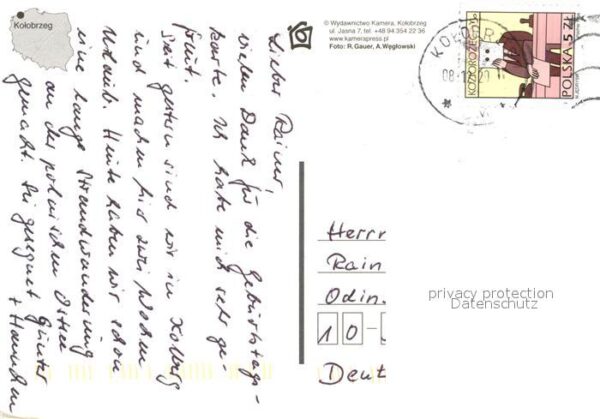 Kołobrzeg
© Wydawnictwo Kamera, Kołobrzeg
ul. Jasna 7, tel. +48 94 354 22 36
www.kamerapress.pl
Foto: R. Gauer, A. Węglowski
KOZIOROŻEC
POLSKA 5 ZŁ
Lieber Rainer,
vielen Dank für die Geburtstags-
karte. Ich habe mich sehr ge-
freut.
Seit gestern sind wir in Kolberg
und machen hier zwei Wochen
Urlaub. Heute haben wir schon
eine lange Strandwanderung
an der polnischen Ostsee
gemacht. Sei gegrüßt Günter
+ Hannchen
Herrn
Rain
Odin.
10-
Deut
privacy protection
Datenschutz